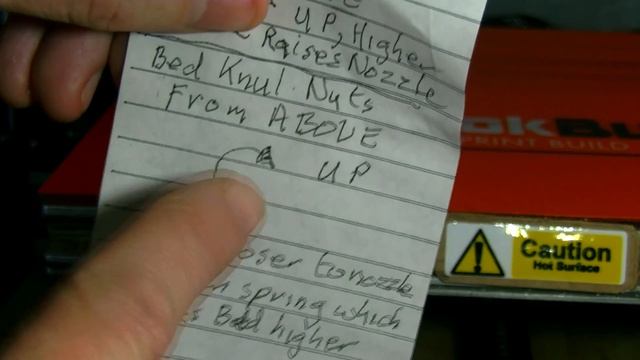 UP, Higher
Raises Nozzle
Bed Knul Nuts
From ABOVE
UP
oser to nozzle
spring which
Bed higher
GKBu
PRINT BUILD
Caution
Hot Surface